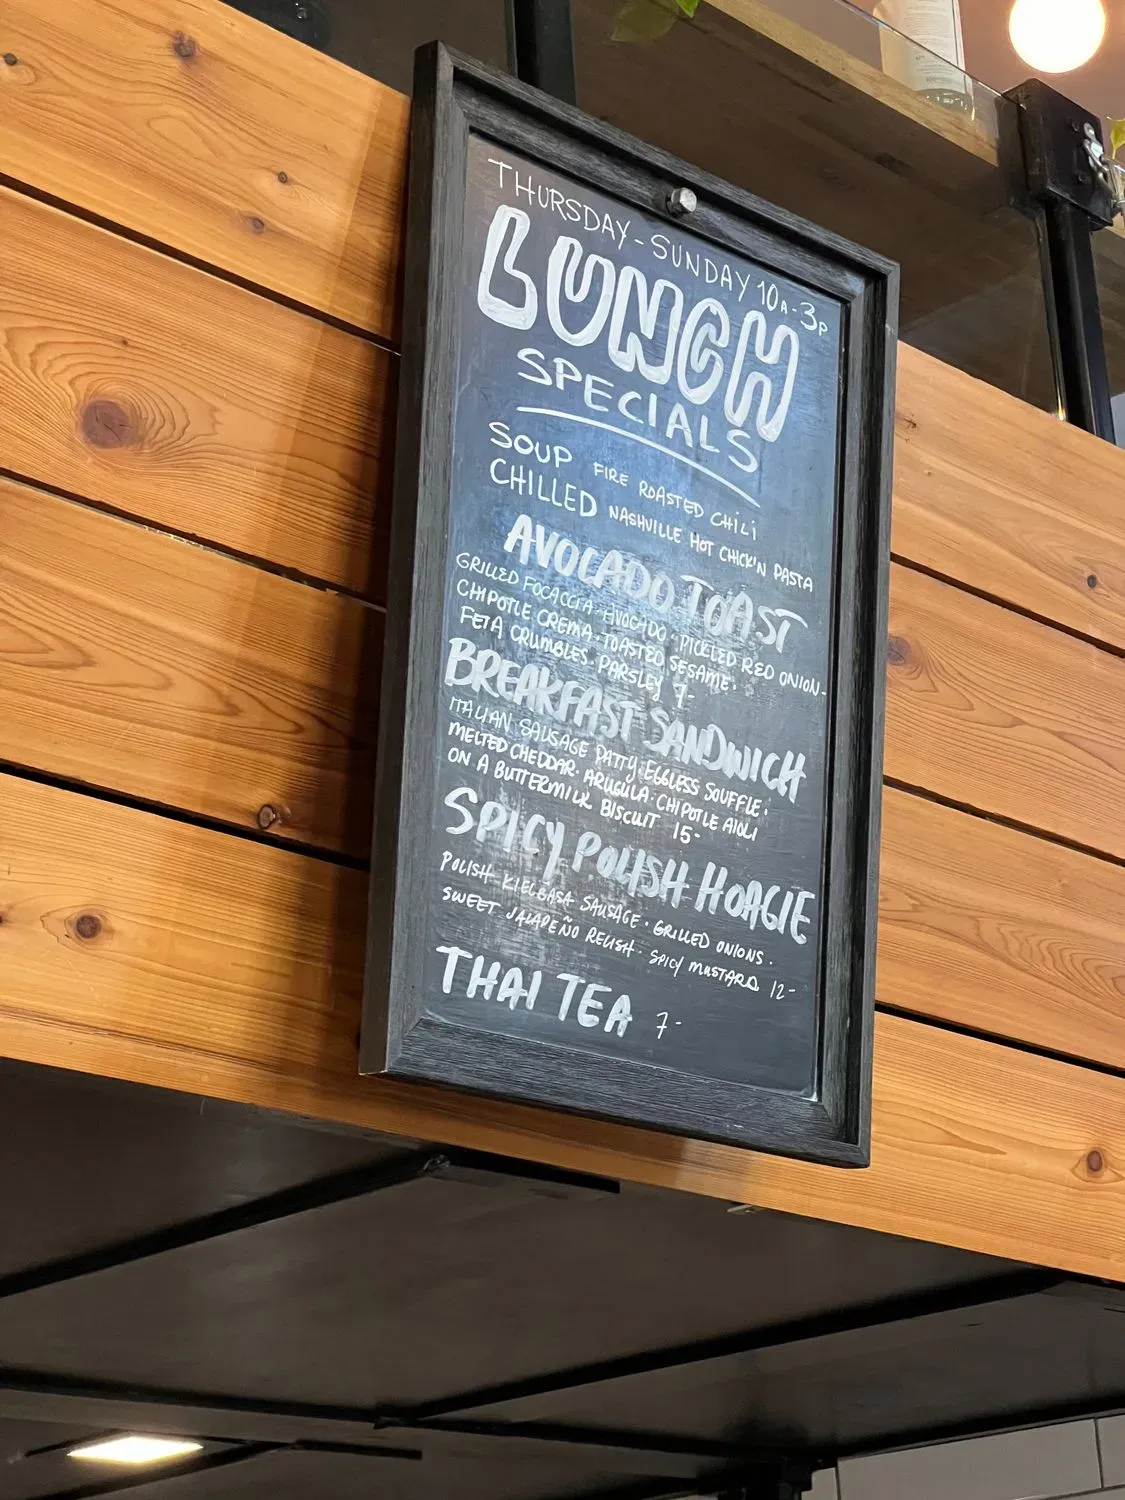 THURSDAY - SUNDAY 10A - 3P
LUNCH
SPECIALS
SOUP FIRE ROASTED CHILI
CHILLED NASHVILLE HOT CHICK'N PASTA
AVOCADO TOAST
GRILLED FOCACCIA · AVOCADO · PICKLED RED ONION ·
CHIPOTLE CREMA · TOASTED SESAME ·
FETA CRUMBLES · PARSLEY 7-
BREAKFAST SANDWICH
ITALIAN SAUSAGE PATTY · EGGLESS SOUFFLE ·
MELTED CHEDDAR · ARUGULA · CHIPOTLE AIOLI
ON A BUTTERMILK BISCUIT 15-
SPICY POLISH HOAGIE
POLISH KIELBASA SAUSAGE · GRILLED ONIONS ·
SWEET JALAPEÑO RELISH · SPICY MUSTARD 12-
THAI TEA 7-